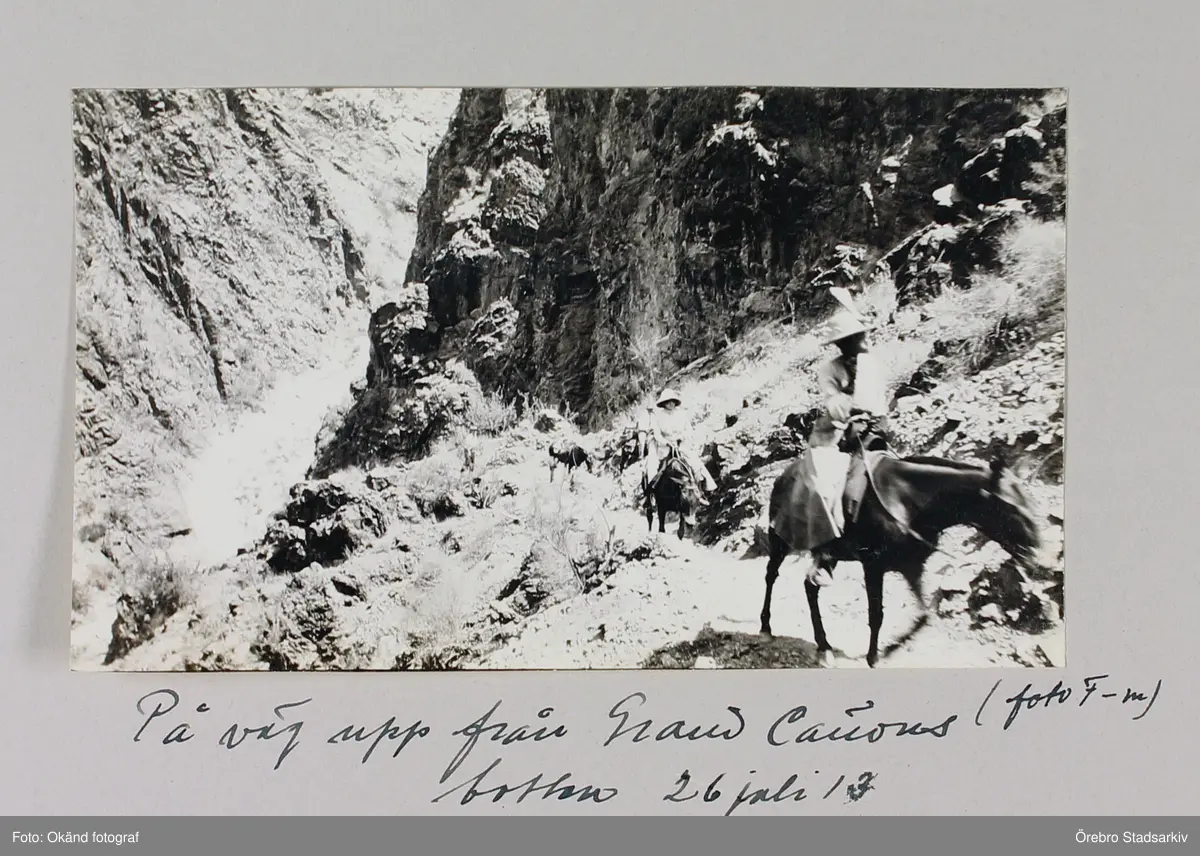 På väg upp från Grand Cañons (foto F-m)
botten 26 juli
Foto: Okänd fotograf
Örebro Stadsarkiv